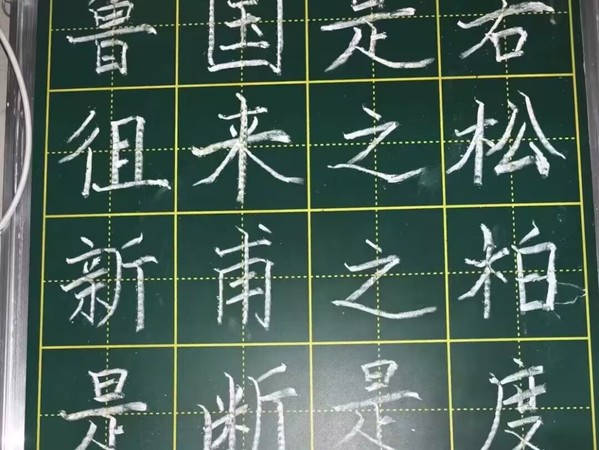 鲁国是
徂来之松
新甫之粕
是断是度